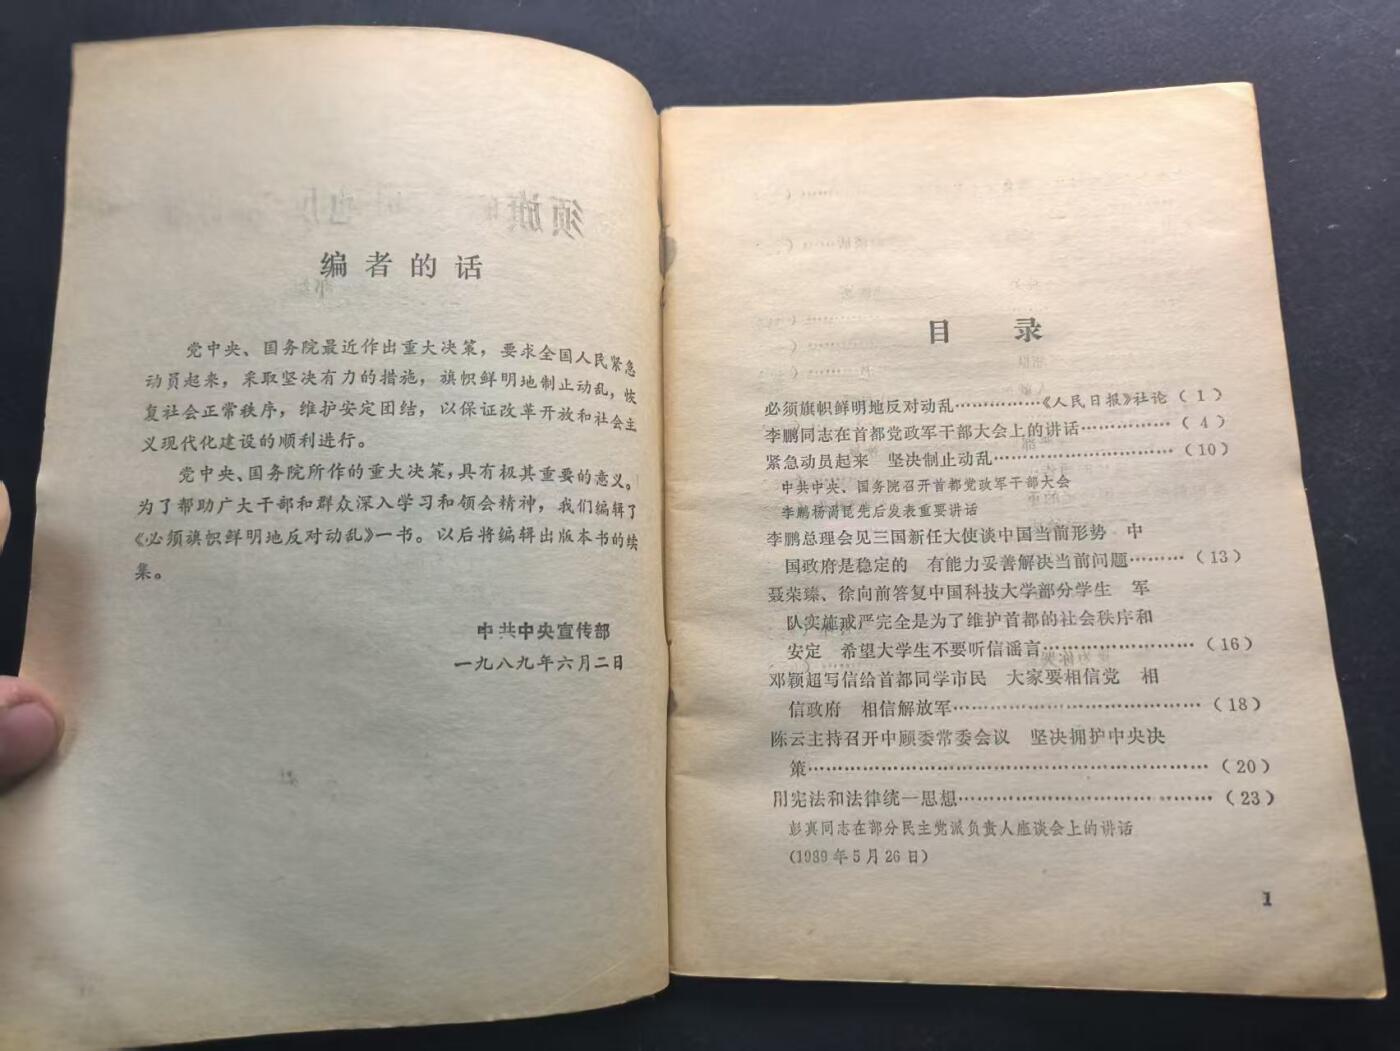 编者的话
党中央、国务院最近作出重大决策，要求全国人民紧急
动员起来，采取坚决有力的措施，旗帜鲜明地制止动乱，恢
复社会正常秩序，维护安定团结，以保证改革开放和社会主
义现代化建设的顺利进行。
党中央、国务院所作的重大决策，具有极其重要的意义。
为了帮助广大干部和群众深入学习和领会精神，我们编辑了
《必须旗帜鲜明地反对动乱》一书。以后将编辑出版本书的续
集。
中共中央宣传部
一九八九年六月二日
目 录
必须旗帜鲜明地反对动乱……………《人民日报》社论（1）
李鹏同志在首都党政军干部大会上的讲话……………（4）
紧急动员起来 坚决制止动乱……………………………（10）
中共中央、国务院召开首都党政军干部大会
李鹏杨尚昆先后发表重要讲话
李鹏总理会见三国新任大使谈中国当前形势 中
国政府是稳定的 有能力妥善解决当前问题………（13）
聂荣臻、徐向前答复中国科技大学部分学生 军
队实施戒严完全是为了维护首都的社会秩序和
安定 希望大学生不要听信谣言………………………（16）
邓颖超写信给首都同学市民 大家要相信党 相
信政府 相信解放军……………………………………（18）
陈云主持召开中顾委常委会议 坚决拥护中央决
策……………………………………………………………（20）
用宪法和法律统一思想……………………………………（23）
彭真同志在部分民主党派负责人座谈会上的讲话
（1989年5月26日）
1